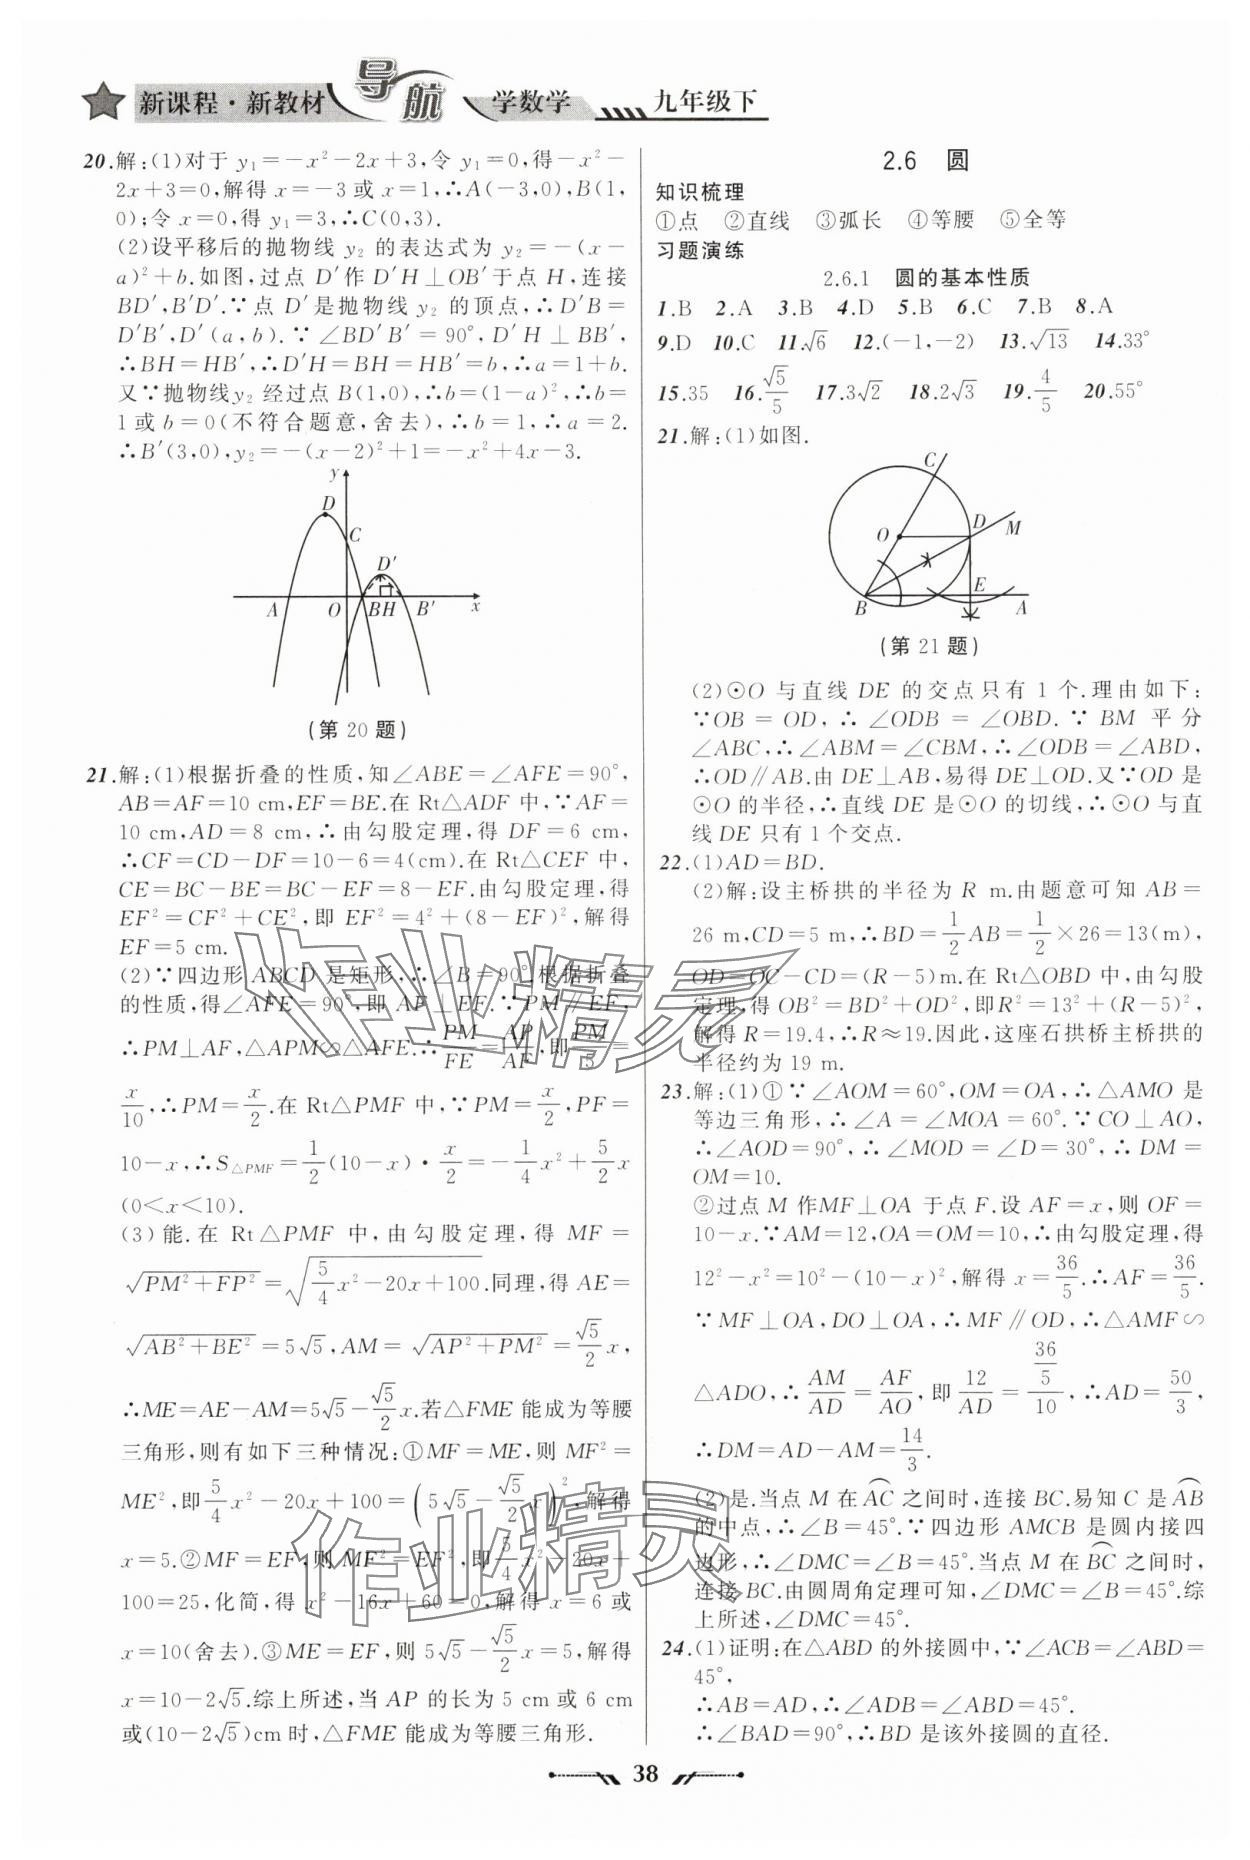 新课程·新教材 导航 学数学 九年级下
20.解:(1)对于 y₁=-x²-2x+3,令 y₁=0,得-x²-
2x+3=0,解得 x=-3 或 x=1,∴A(-3,0),B(1,
0);令 x=0,得 y₁=3,∴C(0,3).
(2)设平移后的抛物线 y₂ 的表达式为 y₂=-(x-
a)²+b.如图,过点 D′作 D′H⊥OB′于点 H,连接
BD′,B′D′.∵点 D′是抛物线 y₂ 的顶点,∴D′B=
D′B′,D′(a,b).∵∠BD′B′=90°,D′H⊥BB′,
∴BH=HB′,∴D′H=BH=HB′=b,∴a=1+b.
又∵抛物线y₂ 经过点 B(1,0),∴b=(1-a)²,∴b=
1或 b=0(不符合题意,舍去),∴b=1,∴a=2.
∴B′(3,0),y₂=-(x-2)²+1=-x²+4x-3.
y
D
C
D′
A O BH B′ x
(第 20 题)
21.解:(1)根据折叠的性质,知∠ABE=∠AFE=90°,
AB=AF=10 cm,EF=BE.在 Rt△ADF 中,∵AF=
10 cm,AD=8 cm,∴由勾股定理,得 DF=6 cm,
∴CF=CD-DF=10-6=4(cm).在 Rt△CEF 中,
CE=BC-BE=BC-EF=8-EF.由勾股定理,得
EF²=CF²+CE²,即 EF²=4²+(8-EF)²,解得
EF=5 cm.
(2)∵四边形 ABCD 是矩形,∴∠B=90°.根据折叠
的性质,得∠AFE=90°,即 AF⊥EF.∵PM∥EF,
∴PM⊥AF,△APM∽△AFE.∴PM/FE=AP/AF,即PM/5=
x/10,∴PM=x/2.在 Rt△PMF 中,∵PM=x/2,PF=
10-x,∴S△PMF=1/2(10-x)·x/2=-1/4x²+5/2x
(0<x<10).
(3)能.在 Rt△PMF 中,由勾股定理,得 MF=
√(PM²+FP²)=√(5/4x²-20x+100).同理,得 AE=
√(AB²+BE²)=5√5,AM=√(AP²+PM²)=√5/2x,
∴ME=AE-AM=5√5-√5/2x.若△FME 能成为等腰
三角形,则有如下三种情况:①MF=ME,则 MF²=
ME²,即5/4x²-20x+100=(5√5-√5/2x)²,解得
x=5.②MF=EF,则 MF²=EF²,即5/4x²-20x+
100=25,化简,得 x²-16x+60=0,解得 x=6 或
x=10(舍去).③ME=EF,则 5√5-√5/2x=5,解得
x=10-2√5.综上所述,当 AP 的长为 5 cm 或 6 cm
或(10-2√5)cm时,△FME 能成为等腰三角形.
2.6 圆
知识梳理
①点 ②直线 ③弧长 ④等腰 ⑤全等
习题演练
2.6.1 圆的基本性质
1.B 2.A 3.B 4.D 5.B 6.C 7.B 8.A
9.D 10.C 11.√6 12.(-1,-2) 13.√13 14.33°
15.35 16.√5/5 17.3√2 18.2√3 19.4/5 20.55°
21.解:(1)如图.
C
O D M
B E A
(第 21 题)
(2)⊙O 与直线 DE 的交点只有 1 个.理由如下:
∵OB=OD,∴∠ODB=∠OBD.∵BM 平分
∠ABC,∴∠ABM=∠CBM,∴∠ODB=∠ABD,
∴OD∥AB.由 DE⊥AB,易得 DE⊥OD.又∵OD 是
⊙O 的半径,∴直线 DE 是⊙O 的切线,∴⊙O 与直
线 DE 只有 1 个交点.
22.(1)AD=BD.
(2)解:设主桥拱的半径为 R m.由题意可知 AB=
26 m,CD=5 m,∴BD=1/2AB=1/2×26=13(m),
OD=OC-CD=(R-5)m.在 Rt△OBD 中,由勾股
定理,得 OB²=BD²+OD²,即R²=13²+(R-5)²,
解得 R=19.4,∴R≈19.因此,这座石拱桥主桥拱的
半径约为 19 m.
23.解:(1)①∵∠AOM=60°,OM=OA,∴△AMO 是
等边三角形,∴∠A=∠MOA=60°.∵CO⊥AO,
∴∠AOD=90°,∴∠MOD=∠D=30°,∴DM=
OM=10.
②过点 M 作MF⊥OA 于点 F.设 AF=x,则 OF=
10-x.∵AM=12,OA=OM=10,∴由勾股定理,得
12²-x²=10²-(10-x)²,解得 x=36/5.∴AF=36/5.
∵MF⊥OA,DO⊥OA,∴MF∥OD,∴△AMF∽
△ADO,∴AM/AD=AF/AO,即12/AD=(36/5)/10,∴AD=50/3,
∴DM=AD-AM=14/3.
(2)是.当点 M 在AC⌒之间时,连接 BC.易知 C 是AB⌒
的中点,∴∠B=45°.∵四边形 AMCB 是圆内接四
边形,∴∠DMC=∠B=45°.当点 M 在BC⌒之间时,
连接BC.由圆周角定理可知,∠DMC=∠B=45°.综
上所述,∠DMC=45°.
24.(1)证明:在△ABD 的外接圆中,∵∠ACB=∠ABD=
45°,
∴AB=AD,∴∠ADB=∠ABD=45°.
∴∠BAD=90°,∴BD 是该外接圆的直径.
38
作业精灵
作业精灵